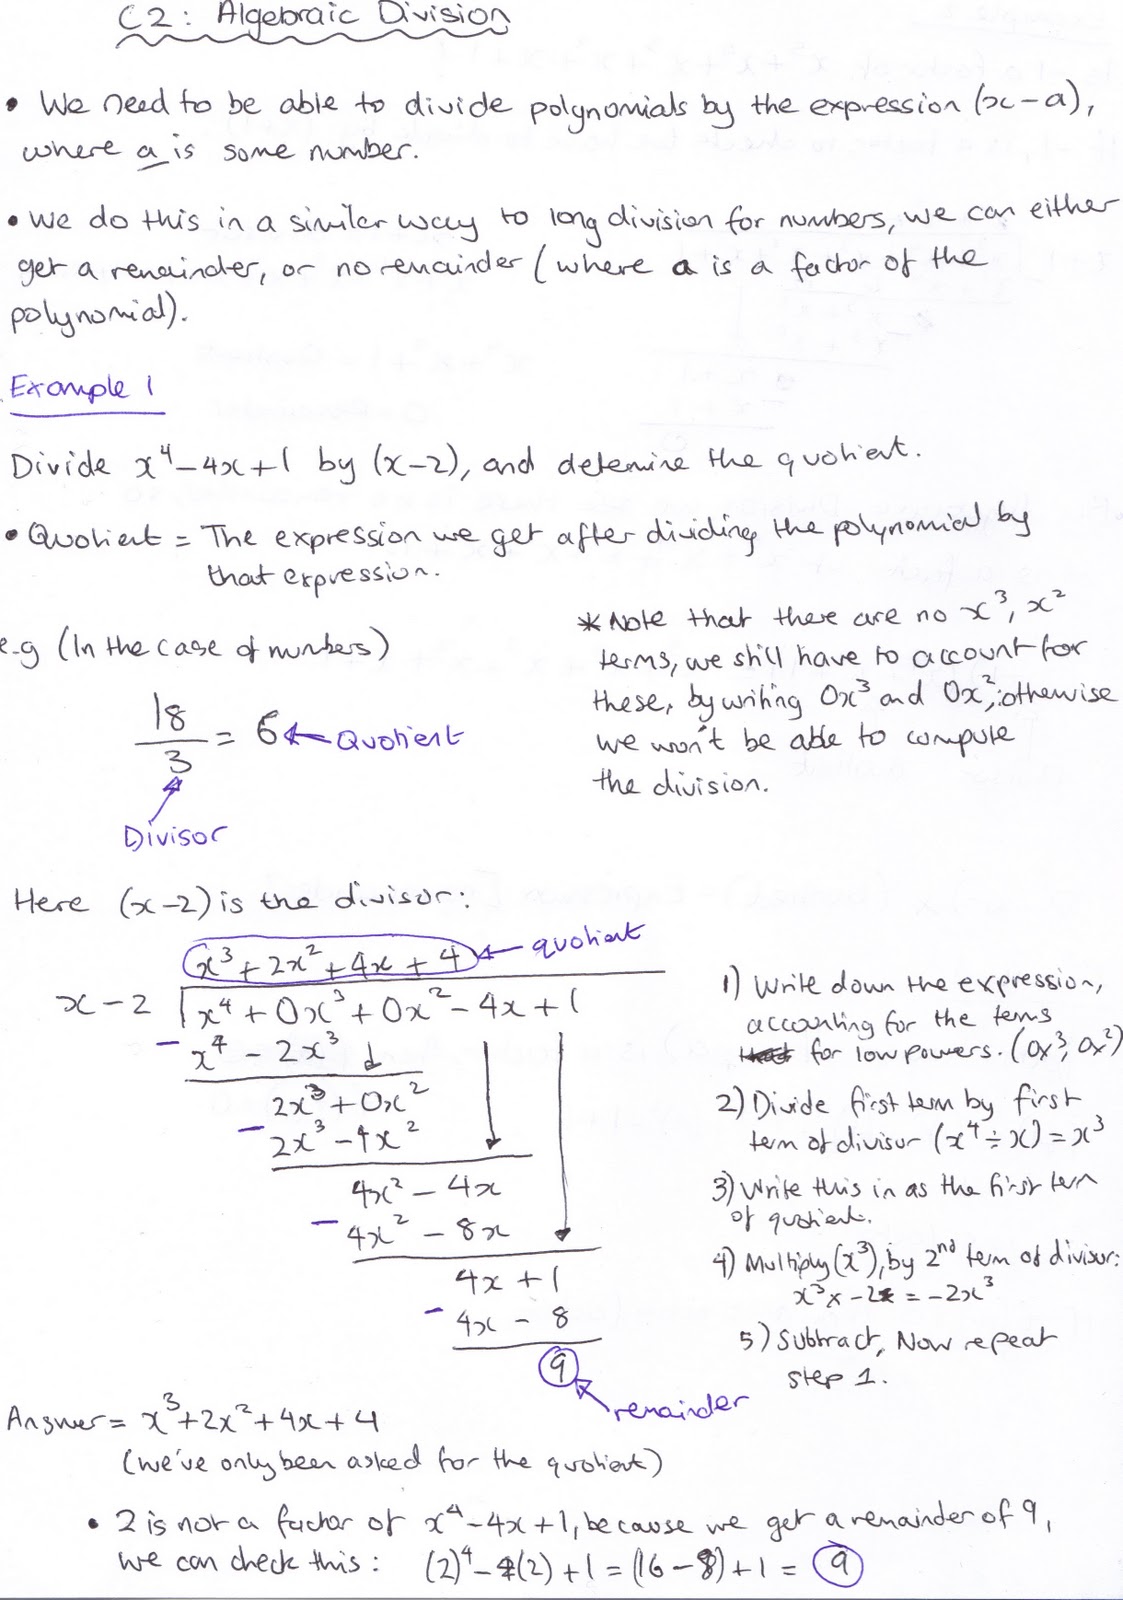 C2: Algebraic Division
• We need to be able to divide polynomials by the expression (x-a),
where a is some number.
• We do this in a similar way to long division for numbers, we can either
get a remainder, or no remainder (where a is a factor of the
polynomial).
Example 1
Divide x⁴-4x+1 by (x-2), and determine the quotient.
• Quotient = The expression we get after dividing the polynomial by
that expression.
e.g (In the case of numbers)
18/3 = 6 ← Quotient
Divisor
* Note that there are no x³, x²
terms, we still have to account for
these, by writing 0x³ and 0x², otherwise
we won't be able to compute
the division.
Here (x-2) is the divisor:
x³+2x²+4x+4 ← quotient
x-2 | x⁴+0x³+0x²-4x+1
- x⁴-2x³ ↓
2x³+0x²
- 2x³-4x²
4x²-4x
- 4x²-8x
4x+1
- 4x-8
9
remainder
1) Write down the expression,
accounting for the terms
for low powers. (0x³, 0x²)
2) Divide first term by first
term of divisor (x⁴÷x)=x³
3) Write this in as the first term
of quotient.
4) Multiply (x³), by 2nd term of divisor:
x³x-2=-2x³
5) Subtract, Now repeat
step 1.
Answer = x³+2x²+4x+4
(we've only been asked for the quotient)
• 2 is not a factor of x⁴-4x+1, because we get a remainder of 9,
we can check this: (2)⁴-4(2)+1=(16-8)+1=9